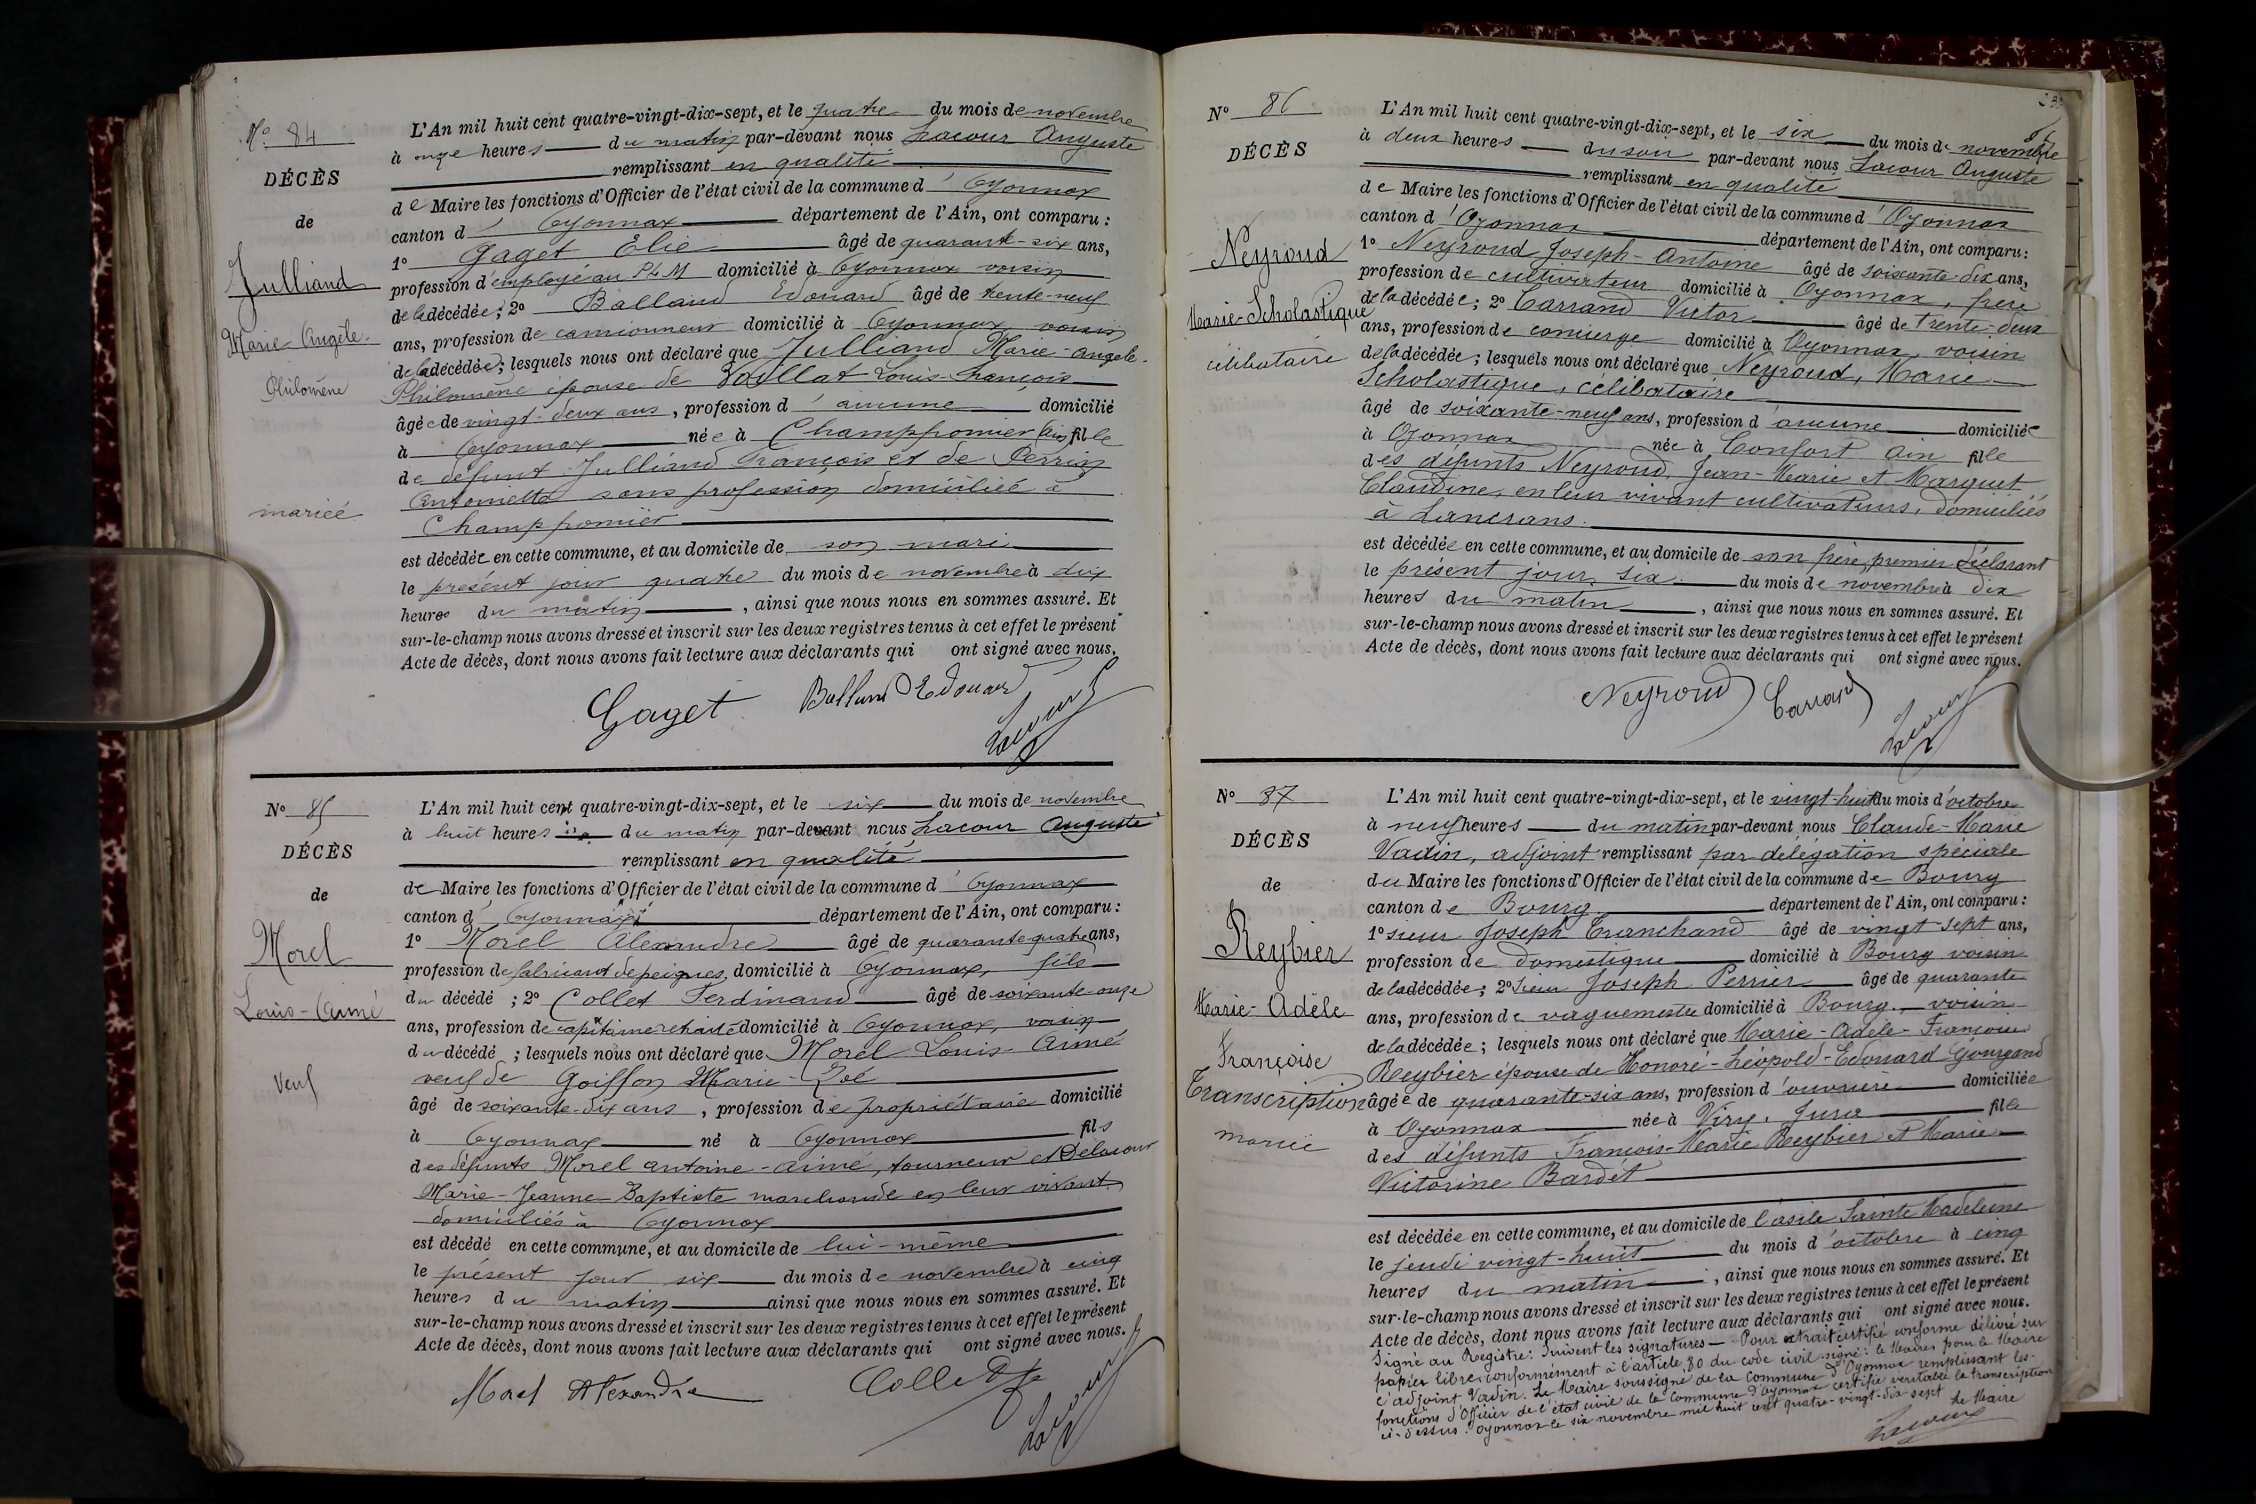 N° 84
DÉCÈS
de
Julliand
Marie-Angèle-
Philomène
mariée
L'An mil huit cent quatre-vingt-dix-sept, et le quatre du mois de novembre
à onze heures du matin par-devant nous Lacour Auguste
remplissant en qualité
de Maire les fonctions d'Officier de l'état civil de la commune d'Oyonnax
canton d'Oyonnax département de l'Ain, ont comparu :
1° Gaget Élie âgé de quarante-six ans,
profession d'employé au PLM domicilié à Oyonnax voisin
de la décédée ; 2° Balland Edouard âgé de trente-neuf
ans, profession de camionneur domicilié à Oyonnax, voisin
de la décédée ; lesquels nous ont déclaré que Julliand Marie-Angèle-
Philomène épouse de Vaillat Louis-François
âgée de vingt-deux ans, profession d'aucune domicilié
à Oyonnax née à Champfromier (Ain) fille
de défunt Julliand François et de Perrin
Antoinette sans profession domiciliée à
Champfromier
est décédée en cette commune, et au domicile de son mari
le présent jour quatre du mois de novembre à dix
heures du matin, ainsi que nous nous en sommes assuré. Et
sur-le-champ nous avons dressé et inscrit sur les deux registres tenus à cet effet le présent
Acte de décès, dont nous avons fait lecture aux déclarants qui ont signé avec nous.
Gaget Balland Edouard Lacour
N° 85
DÉCÈS
de
Morel
Louis-Aimé
Veuf
L'An mil huit cent quatre-vingt-dix-sept, et le six du mois de novembre
à huit heures du matin par-devant nous Lacour Auguste
remplissant en qualité
de Maire les fonctions d'Officier de l'état civil de la commune d'Oyonnax
canton d'Oyonnax département de l'Ain, ont comparu :
1° Morel Alexandre âgé de quarante quatre ans,
profession de fabricant de peignes, domicilié à Oyonnax, fils
du décédé ; 2° Collet Ferdinand âgé de soixante-onze
ans, profession de capitaine retraité domicilié à Oyonnax, voisin
du décédé ; lesquels nous ont déclaré que Morel Louis Aimé
veuf de Goiffon Marie-Zoé
âgé de soixante-dix ans, profession de propriétaire domicilié
à Oyonnax né à Oyonnax fils
des défunts Morel Antoine-Aimé, tourneur et Delacour
Marie-Jeanne Baptiste marchande en leur vivant
domiciliés à Oyonnax
est décédé en cette commune, et au domicile de lui-même
le présent jour six du mois de novembre à cinq
heures du matin ainsi que nous nous en sommes assuré. Et
sur-le-champ nous avons dressé et inscrit sur les deux registres tenus à cet effet le présent
Acte de décès, dont nous avons fait lecture aux déclarants qui ont signé avec nous.
Morel Alexandre Collet Lacour
N° 86
DÉCÈS
Neyroud
Marie-Scholastique
célibataire
L'An mil huit cent quatre-vingt-dix-sept, et le six du mois de novembre
à deux heures du soir par-devant nous Lacour Auguste
remplissant en qualité
de Maire les fonctions d'Officier de l'état civil de la commune d'Oyonnax
canton d'Oyonnax département de l'Ain, ont comparu :
1° Neyroud Joseph-Antoine âgé de soixante-dix ans,
profession de cultivateur domicilié à Oyonnax, frère
de la décédée ; 2° Carrand Victor âgé de trente-deux
ans, profession de concierge domicilié à Oyonnax, voisin
de la décédée ; lesquels nous ont déclaré que Neyroud, Marie
Scholastique, célibataire
âgé de soixante-neuf ans, profession d'aucune domiciliée
à Oyonnax née à Confort Ain fille
des défunts Neyroud, Jean-Marie et Marquet
Claudine, en leur vivant cultivateurs, domiciliés
à Lancrans.
est décédée en cette commune, et au domicile de son frère, premier déclarant
le présent jour, six du mois de novembre à dix
heures du matin, ainsi que nous nous en sommes assuré. Et
sur-le-champ nous avons dressé et inscrit sur les deux registres tenus à cet effet le présent
Acte de décès, dont nous avons fait lecture aux déclarants qui ont signé avec nous.
Neyroud Carrand Lacour
N° 87
DÉCÈS
de
Reybier
Marie-Adèle
Françoise
Transcription
mariée
L'An mil huit cent quatre-vingt-dix-sept, et le vingt-huit du mois d'octobre
à neuf heures du matin par-devant nous Claude-Marie
Vadin, adjoint remplissant par délégation spéciale
du Maire les fonctions d'Officier de l'état civil de la commune de Bourg
canton de Bourg département de l'Ain, ont comparu :
1° sieur Joseph Tranchand âgé de vingt sept ans,
profession de domestique domicilié à Bourg voisin
de la décédée ; 2° sieur Joseph Perrier âgé de quarante
ans, profession de vaguemestre domicilié à Bourg, voisin
de la décédée ; lesquels nous ont déclaré que Marie-Adèle-Françoise
Reybier épouse de Honoré-Léopold-Edouard Gourgand
âgée de quarante-six ans, profession d'ouvrière domiciliée
à Oyonnax née à Viry, Jura fille
des défunts François-Marie Reybier et Marie
Victorine Bardet
est décédée en cette commune, et au domicile de l'asile Sainte Madeleine
le jeudi vingt-huit du mois d'octobre à cinq
heures du matin, ainsi que nous nous en sommes assuré. Et
sur-le-champ nous avons dressé et inscrit sur les deux registres tenus à cet effet le présent
Acte de décès, dont nous avons fait lecture aux déclarants qui ont signé avec nous.
Signé au Registre : Suivent les signatures — Pour extrait certifié conforme délivré sur
papier libre conformément à l'article 80 du code civil signé : le Maire, pour le Maire
l'adjoint Vadin. Le Maire soussigné de la commune d'Oyonnax remplissant les
fonctions d'Officier de l'état civil de la commune d'Oyonnax certifie véritable la transcription
ci-dessus. Oyonnax le six novembre mil huit cent quatre-vingt-dix sept
Le Maire
Lacour